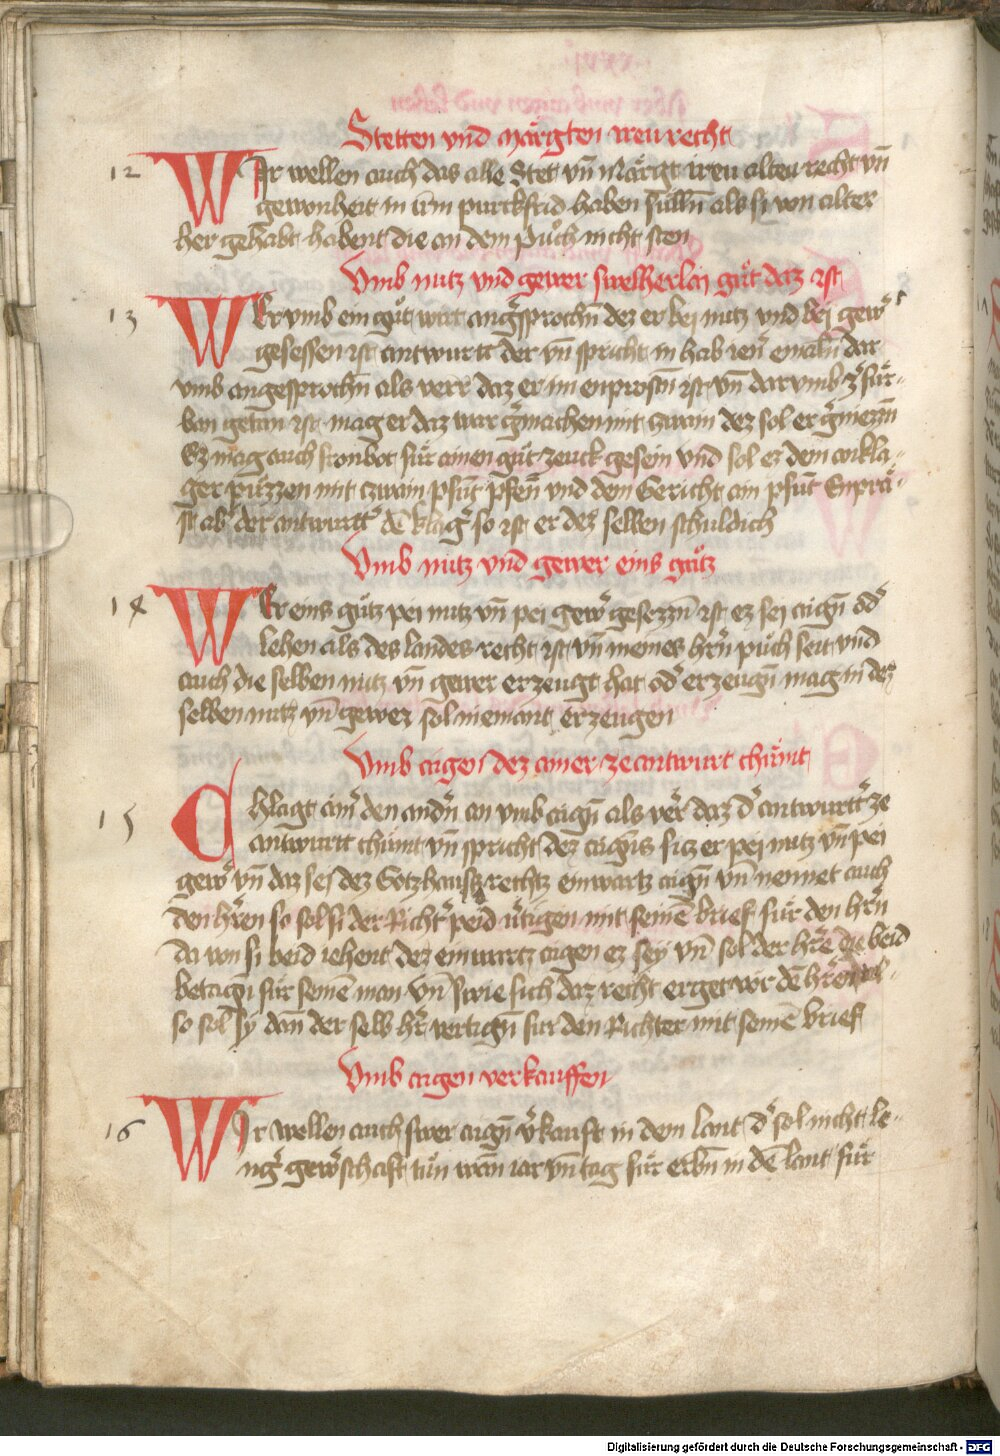 Stetten vnd Märgten ireu recht
12 WIr wellen auch das alle Stet vn̄ Märgt ireu alteu recht vn̄
gewonheit in irm purckfrid haben sülln̄ als si von alter
her gehabt habent die an dem Puͦch nicht sten
Vmb nutz vnd gewer swelherlaj guͦt daz ist
13 WEr vmb ein guͦt wirt angesprochn̄ dez er bei nutz vnd bei gewer
gesessen ist antwurtt der vn̄ spricht in hab iener emaln̄ dar
vmb angesprochn̄ als verr daz er im enprosn̄ ist vn̄ darvmb
ban getan ist mag er daz war gemachen mit zwain dez sol er geniezzn̄
Ez mag auch fronbot für ainen guͦt zeuck gesein vnd sol ez dem ankla-
ger püzzen mit czwain pfūt pfen̄ vnd dem Gericht ain pfūt Enprä-
st ab̾ der antwurtt̾ dē klag̾ so ist er dez selben schuldich
Vmb nutz vnd gewer eins guͦtz
14 WEr eins guͦtz pei nutz vn̄ pei gew̾ gesezzn̄ ist ez sej aign̄ od̾
lehen als des landes recht ist vn̄ meines hr̄n puͦch seit vnd
auch die selben nutz vn̄ gewer erzeugt hat od̾ erzeugn̄ mag in dez
selben nutz vn̄ gewer sol niemant erzeugen
Vmb aigen dez ainer ze antwurt chümt
15 Chlagt ain̾ den andn̄ an vmb aign̄ als ver daz d̾ antwurtt̾ ze
antwurtt chümt vn̄ spricht dez aigens sicz er pej nutz vn̄ pei
gew̾ vn̄ daz sej dez Gotzhausz rechtz einwartz aign̄ vn̄ nennet auch
den hr̄ren so sol si der Richt̾ peid v̾tigen mit seinē brief für den hr̄n
da von si beid iehent dez einwartz aigen ez sey vn̄ sol der hr̄e die beid
betagn̄ für seinē man vn̄ swie sich daz recht erget vor dē hr̄en
so sol sy dan̄ der selb hr̄ vertign̄ für den Richter mit seinē brief
Vmb aigen verkauffen
16 WIr wellen auch swer aign̄ v̾kauft in dem lant d̾ sol nicht le-
ng̾ gew̾schaft tuͦn wan̄ iar vn̄ tag für erbn̄ in dē lant für
Digitalisierung gefördert durch die Deutsche Forschungsgemeinschaft - DFG